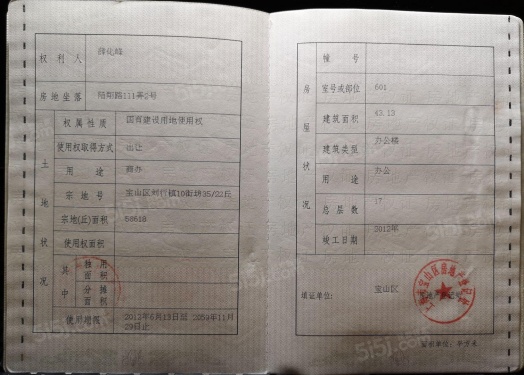 权利人
薛化峰
房地坐落
陆翔路111弄2号
土地状况
权属性质
国有建设用地使用权
使用权取得方式
出让
用途
商办
宗地号
宝山区顾村镇10街坊35/22丘
宗地(丘)面积
58618
使用权面积
其中
独用面积
分摊面积
使用期限
2012年6月13日至 2059年11月
29日止
房屋状况
幢号
室号或部位
601
建筑面积
43.13
建筑类型
办公楼
用途
办公
总层数
17
竣工日期
2012年
填证单位:
宝山区
面积单位:平方米
5i5j.com
5i5j.com